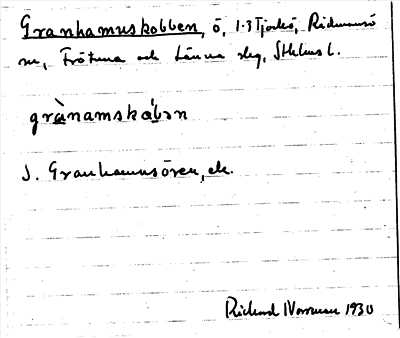 Granhamuskobben, ö, 1·3 Tjockö, Ridmansö
sn, Frötuna och Länna slg, Sthlms l.
grànamskábən
J. Granhamnsören, etc.
Rickard 1930